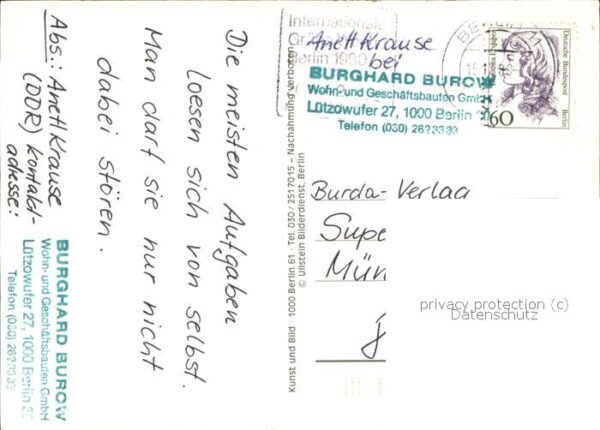 Die meisten Aufgaben
loesen sich von selbst.
Man darf sie nur nicht
dabei stören.
Abs.: Anett Krause
(DDR) kontakt-
adresse:
BURGHARD BUROW
Wohn- und Geschäftsbauten GmbH
Lützowufer 27, 1000 Berlin 30
Telefon (030)
Kunst und Bild 1000 Berlin 61 · Tel. 030/2517015 – Nachahmung verboten
© Ullstein Bilderdienst, Berlin
Internationale
Berlin 1990
Anett Krause
bei
BURGHARD BUROW
Wohn- und Geschäftsbauten GmbH
Lützowufer 27, 1000 Berlin
Telefon (030)
BERLIN 11
Deutsche Bundespost
Berlin
60
Burda-Verlag
Supe
Mün
privacy protection (c)
Datenschutz